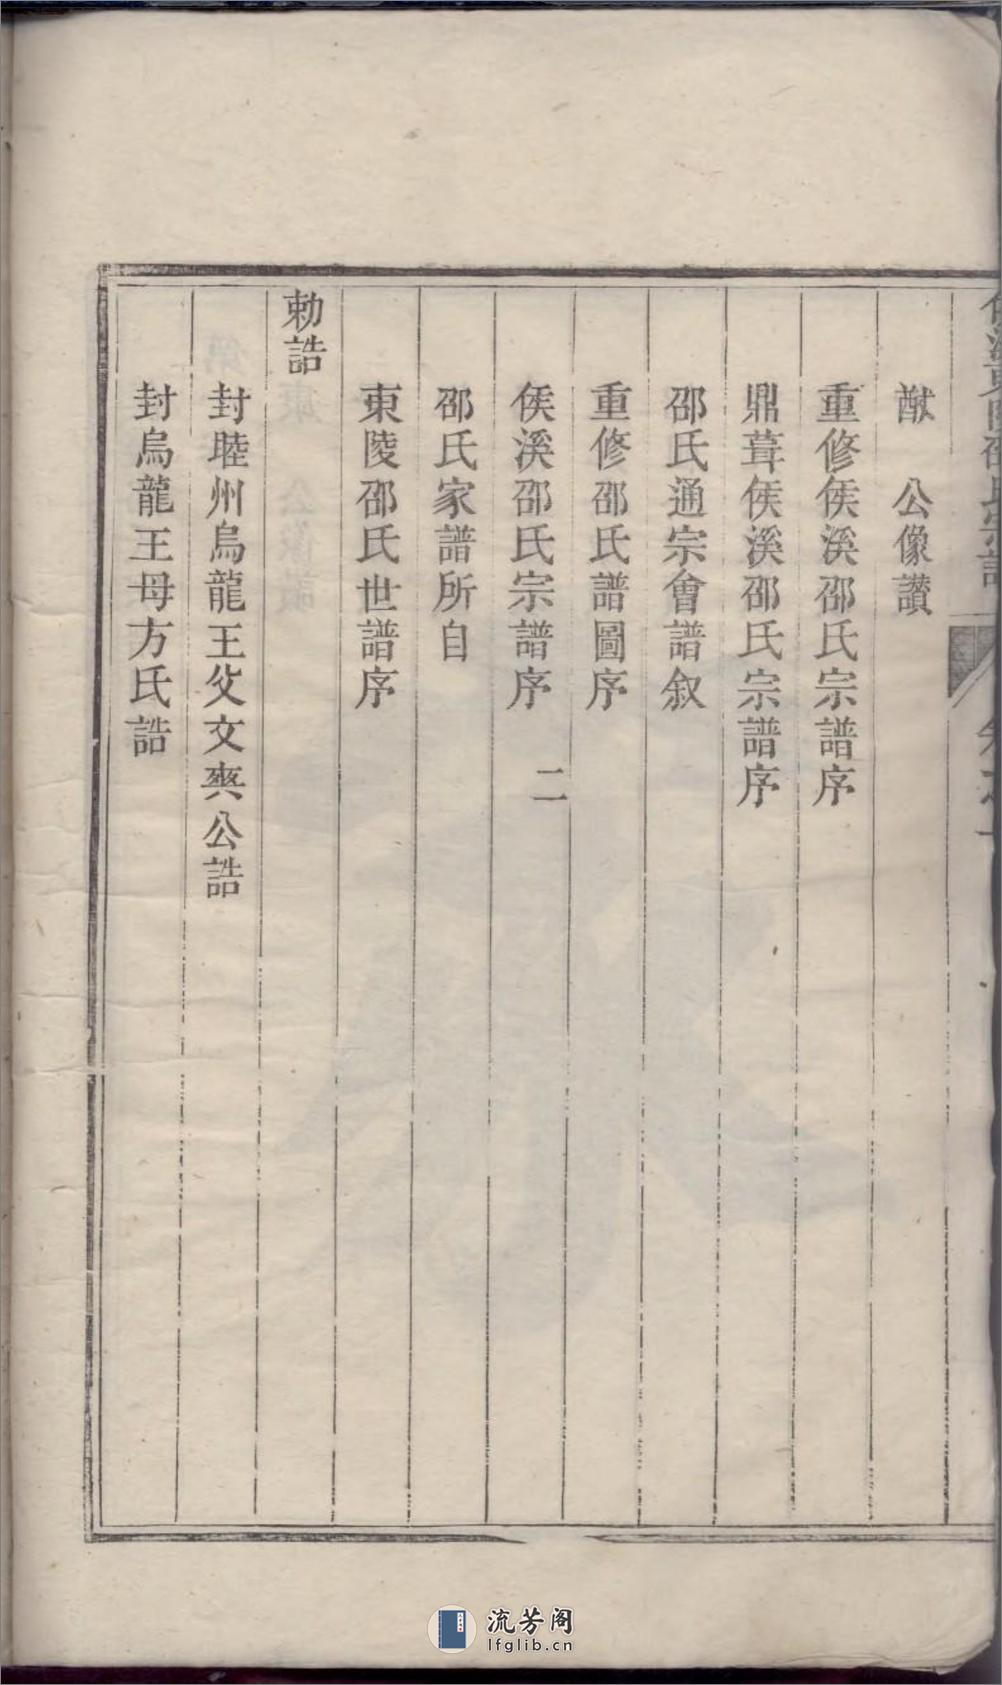 猷　公像讃
重修侯溪邵氏宗譜序
鼎葺侯溪邵氏宗譜序
邵氏通宗會譜叙
重修邵氏譜圖序
侯溪邵氏宗譜序　二
邵氏家譜所自
東陵邵氏世譜序
勅誥
封睦州烏龍王父文奭公誥
封烏龍王母方氏誥
流芳阁
lfglib.cn